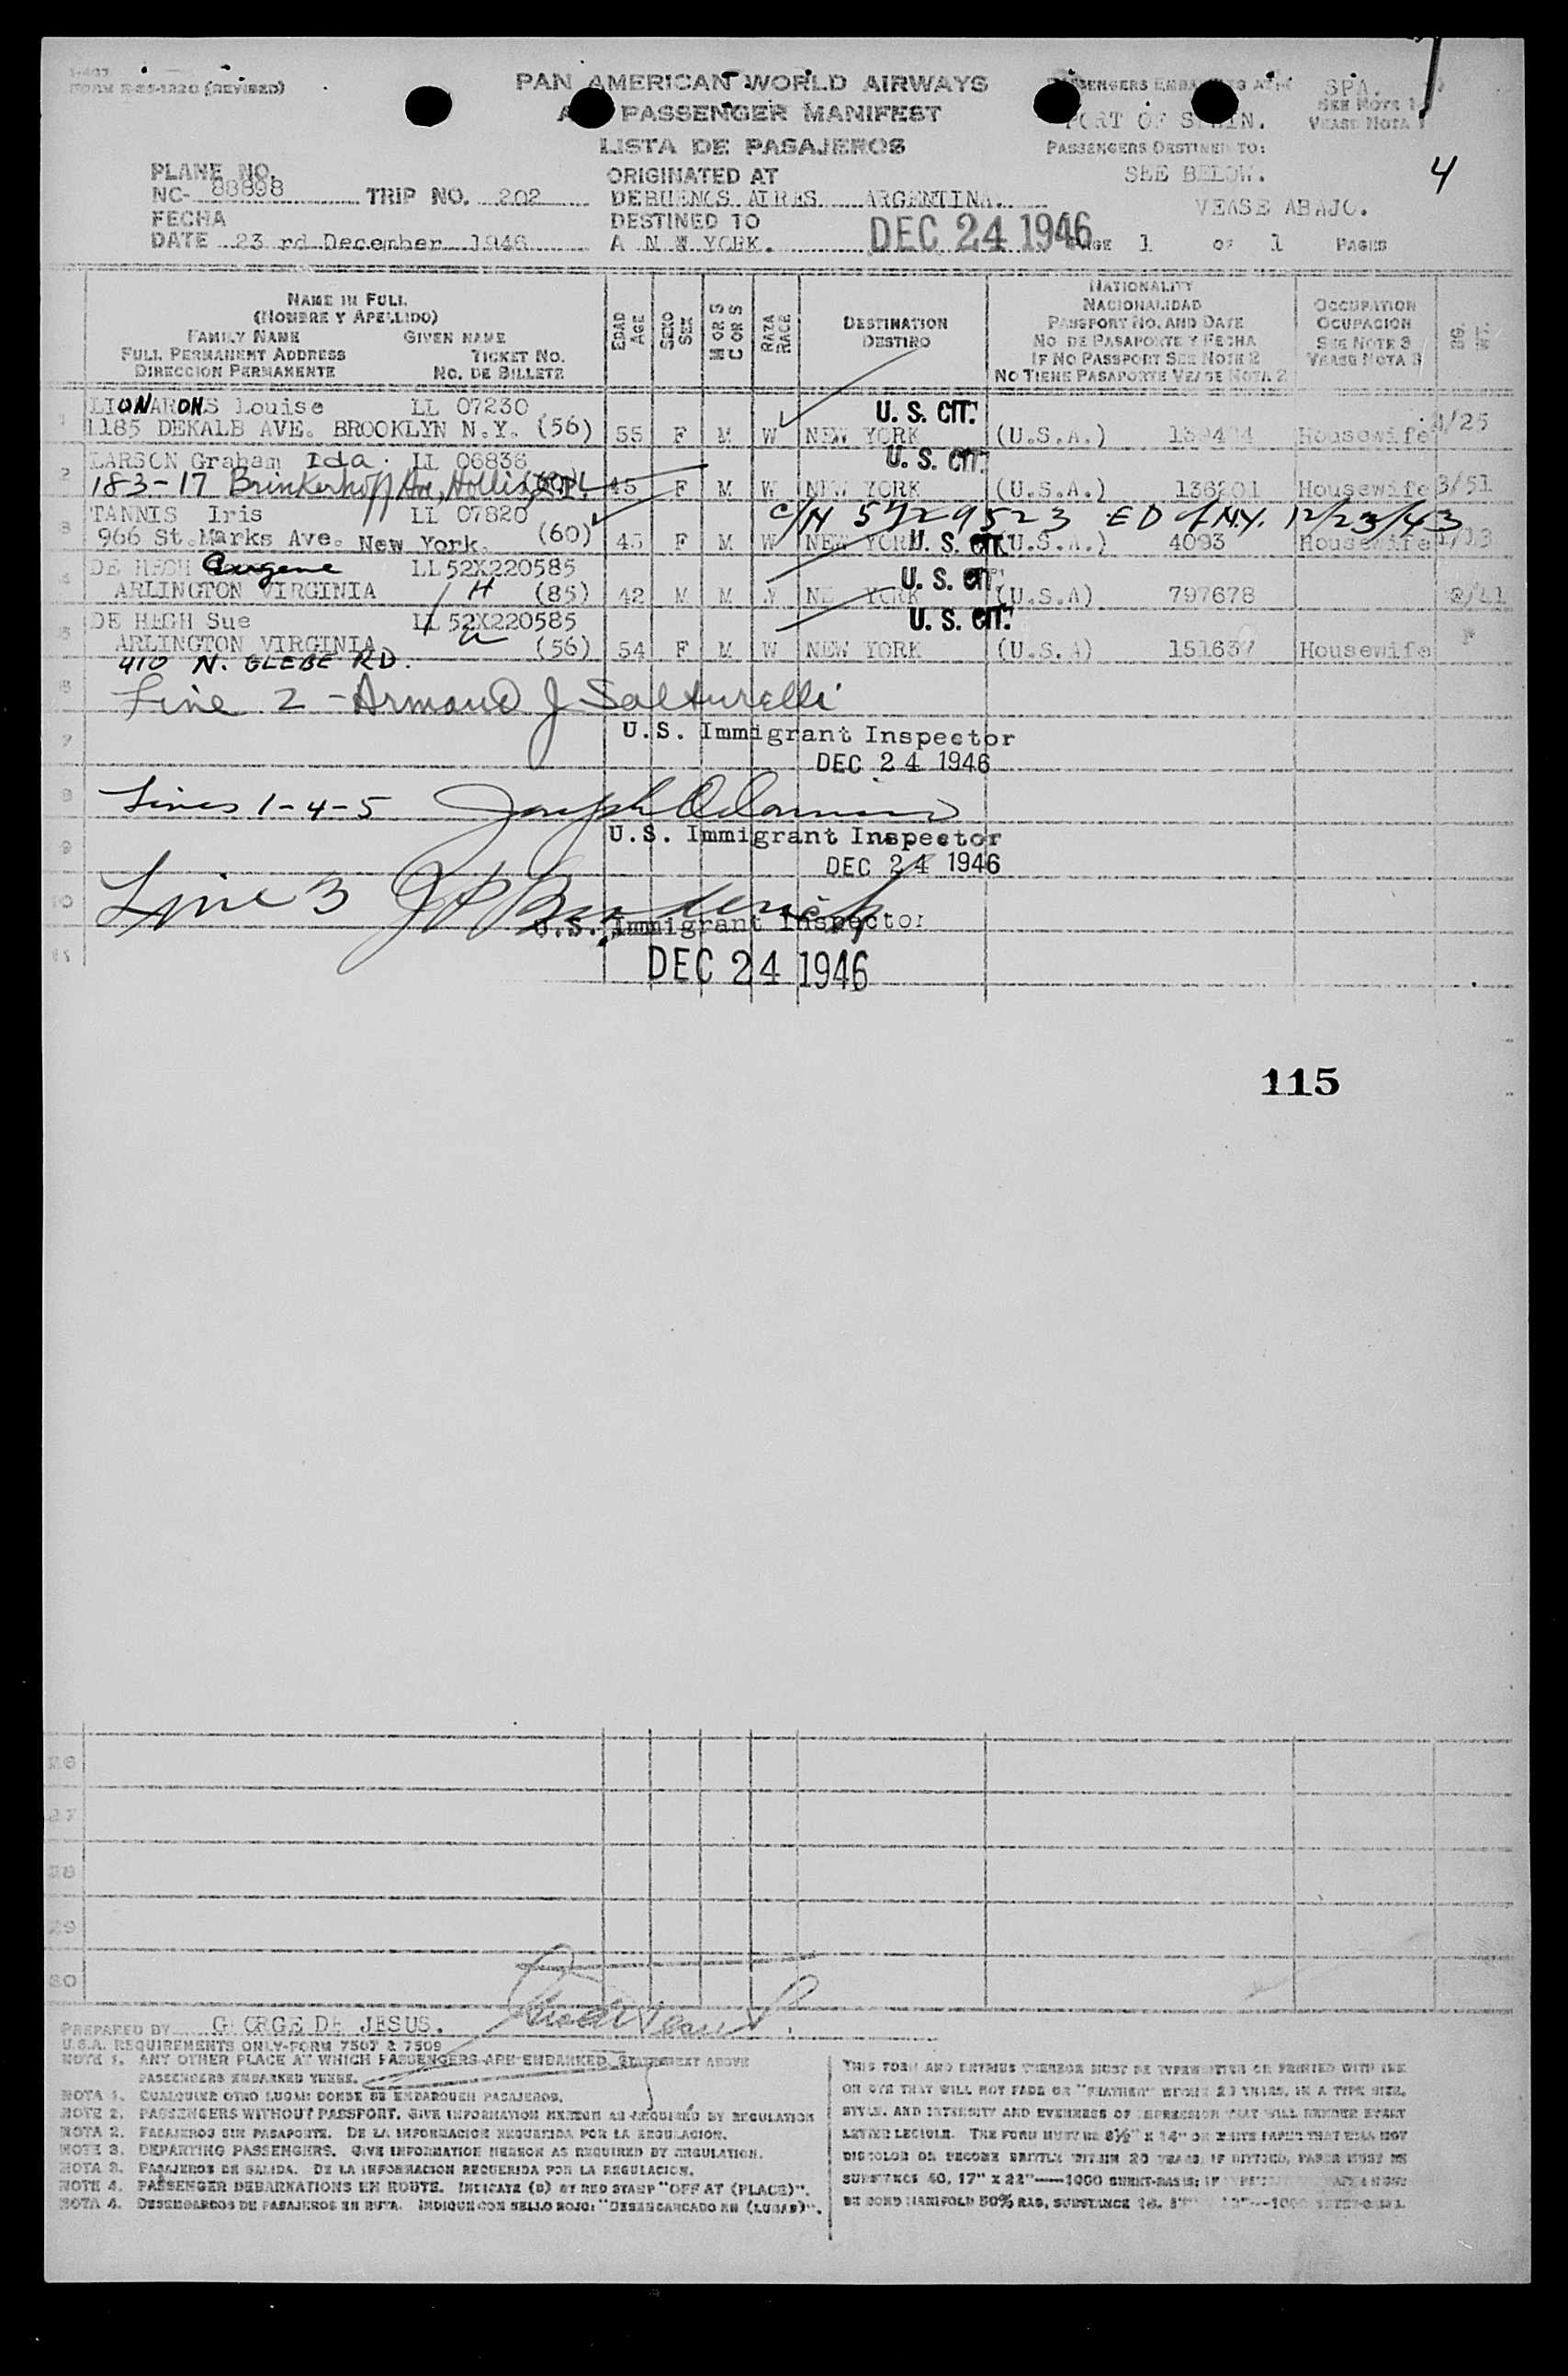 FORM R-25-1220 (REVISED)
PAN AMERICAN WORLD AIRWAYS
PASSENGER MANIFEST
LISTA DE PASAJEROS
SPA.
SEE NOTE 1
VEASE NOTA 1
PORT OF SPAIN.
PASSENGERS DESTINED TO:
SEE BELOW.
VEASE ABAJO.
4
PLANE NO.
NC- 88898 TRIP NO. 202
ORIGINATED AT
DE BUENOS AIRES ARGENTINA.
FECHA
DATE 23 rd December 1946
DESTINED TO
A N W YORK.
DEC 24 1946
PAGE 1 OF 1 PAGES
NAME IN FULL
(NOMBRE Y APELLIDO)
FAMILY NAME GIVEN NAME
FULL PERMANENT ADDRESS TICKET NO.
DIRECCION PERMANENTE NO. DE BILLETE
EDAD AGE
SEXO SEX
M OR S C OR S
RAZA RACE
DESTINATION
DESTINO
NATIONALITY
NACIONALIDAD
PASSPORT NO. AND DATE
NO DE PASAPORTE Y FECHA
IF NO PASSPORT SEE NOTE 2
NO TIENE PASAPORTE VEASE NOTA 2
OCCUPATION
OCUPACION
SEE NOTE 3
VEASE NOTA 3
1 LIONARONS Louise LL 07230 U. S. CIT.
1185 DEKALB AVE. BROOKLYN N.Y. (56) 55 F M W NEW YORK (U.S.A.) Housewife 4/25
2 LARSON Graham Ida. LL 06836 U. S. CIT.
183-17 Brinkerhoff Ave, Hollis, 45 F M W NEW YORK (U.S.A.) 136201 Housewife 3/51
3 TANNIS Iris LL 07820 C/N 5729523 ED of N.Y. 12/23/43
966 St. Marks Ave. New York. (60) F M W NEW YORK U. S. CIT. (U.S.A.) 4093 Housewife
4 DE HIGH Eugene LL 52X220585 U. S. CIT.
ARLINGTON VIRGINIA H (85) 42 M M W NEW YORK (U.S.A) 797678
5 DE HIGH Sue LL 52X220585 U. S. CIT.
ARLINGTON VIRGINIA (56) 54 F M W NEW YORK (U.S.A) 151637 Housewife
410 N. GLEBE RD.
6 Line 2 - Armand J Salturelli
7 U.S. Immigrant Inspector
DEC 24 1946
8 Lines 1-4-5 Joseph
9 U.S. Immigrant Inspector
DEC 24 1946
10 Line 3
U.S. Immigrant Inspector
11 DEC 24 1946
115
26
27
28
29
30
PREPARED BY GEORGE DE JESUS.
U.S.A. REQUIREMENTS ONLY-FORM 7507 & 7509
NOTE 1. ANY OTHER PLACE AT WHICH PASSENGERS ARE EMBARKED, ABOVE
PASSENGERS EMBARKED THERE.
NOTA 1. CUALQUIER OTRO LUGAR DONDE SE EMBARQUEN PASAJEROS.
NOTE 2. PASSENGERS WITHOUT PASSPORT. GIVE INFORMATION HEREON AS REQUIRED BY REGULATION
NOTA 2. PASAJEROS SIN PASAPORTE. DE LA INFORMACION REQUERIDA POR LA REGULACION.
NOTE 3. DEPARTING PASSENGERS. GIVE INFORMATION HEREON AS REQUIRED BY REGULATION.
NOTA 3. PASAJEROS DE SALIDA. DE LA INFORMACION REQUERIDA POR LA REGULACION.
NOTE 4. PASSENGER DEBARKATIONS EN ROUTE. INDICATE (D) BY RED STAMP "OFF AT (PLACE)".
NOTA 4. DESEMBARCOS DE PASAJEROS EN RUTA. INDIQUE CON SELLO ROJO: "DESEMBARCADO EN (LUGAR)".
THIS FORM AND ENTRIES THEREOF MUST BE TYPEWRITTEN OR PRINTED WITH INK
OR DYE THAT WILL NOT FADE OR "FEATHER" WITHIN 20 YEARS, IN A TYPE SIZE,
STYLE, AND INTENSITY AND EVENNESS OF IMPRESSION THAT WILL RENDER EVERY
LETTER LEGIBLE. THE FORM MUST BE 8½" X 14" ON WHITE PAPER THAT WILL NOT
DISCOLOR OR BECOME BRITTLE WITHIN 20 YEARS. IF DITTOED, PAPER MUST BE
SUBSTANCE 40, 17" X 22"—1000 SHEET-BASIS; IF
BE BOND MANIFOLD 50% RAG, SUBSTANCE 16. 1000 SHEET-BASIS.